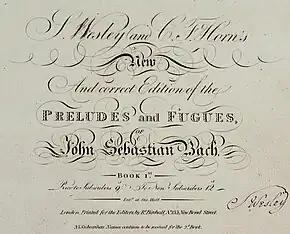 S. Wesley and C. F. Horn's
New
And correct Edition of the
PRELUDES and FUGUES,
OF
John Sebastian Bach.
BOOK 1st
Price to Subscribers 9s. To Non Subscribers
Entd. at Sta. Hall
London. Printed for the Editors by Rt. Birchall, No. 133, New Bond Street.
N.B. Subscribers Names continue to be received for the 2d. Book.
S Wesley